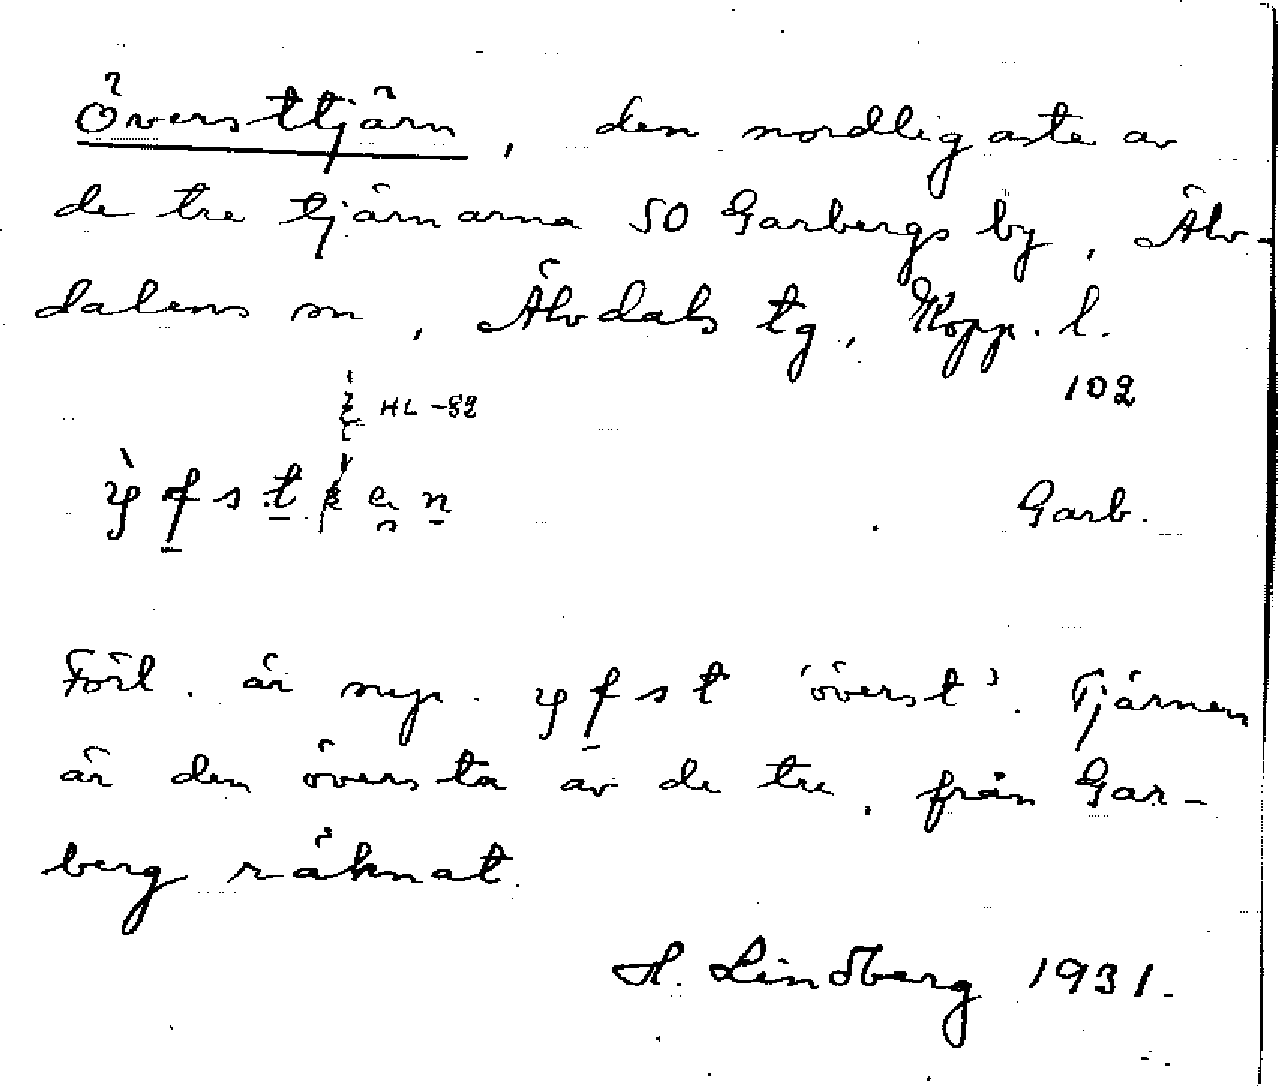 Översttjärn, den nordligaste av
de tre tjärnarna SO Garbergs by, Älv-
dalens sn, Älvdals tg, Kopp. l.
102
HL -82
Garb.
Förl. är superl. yfst 'överst'. Tjärnen
är den översta av de tre, från Gar-
berg räknat.
H. Lindberg 1931.